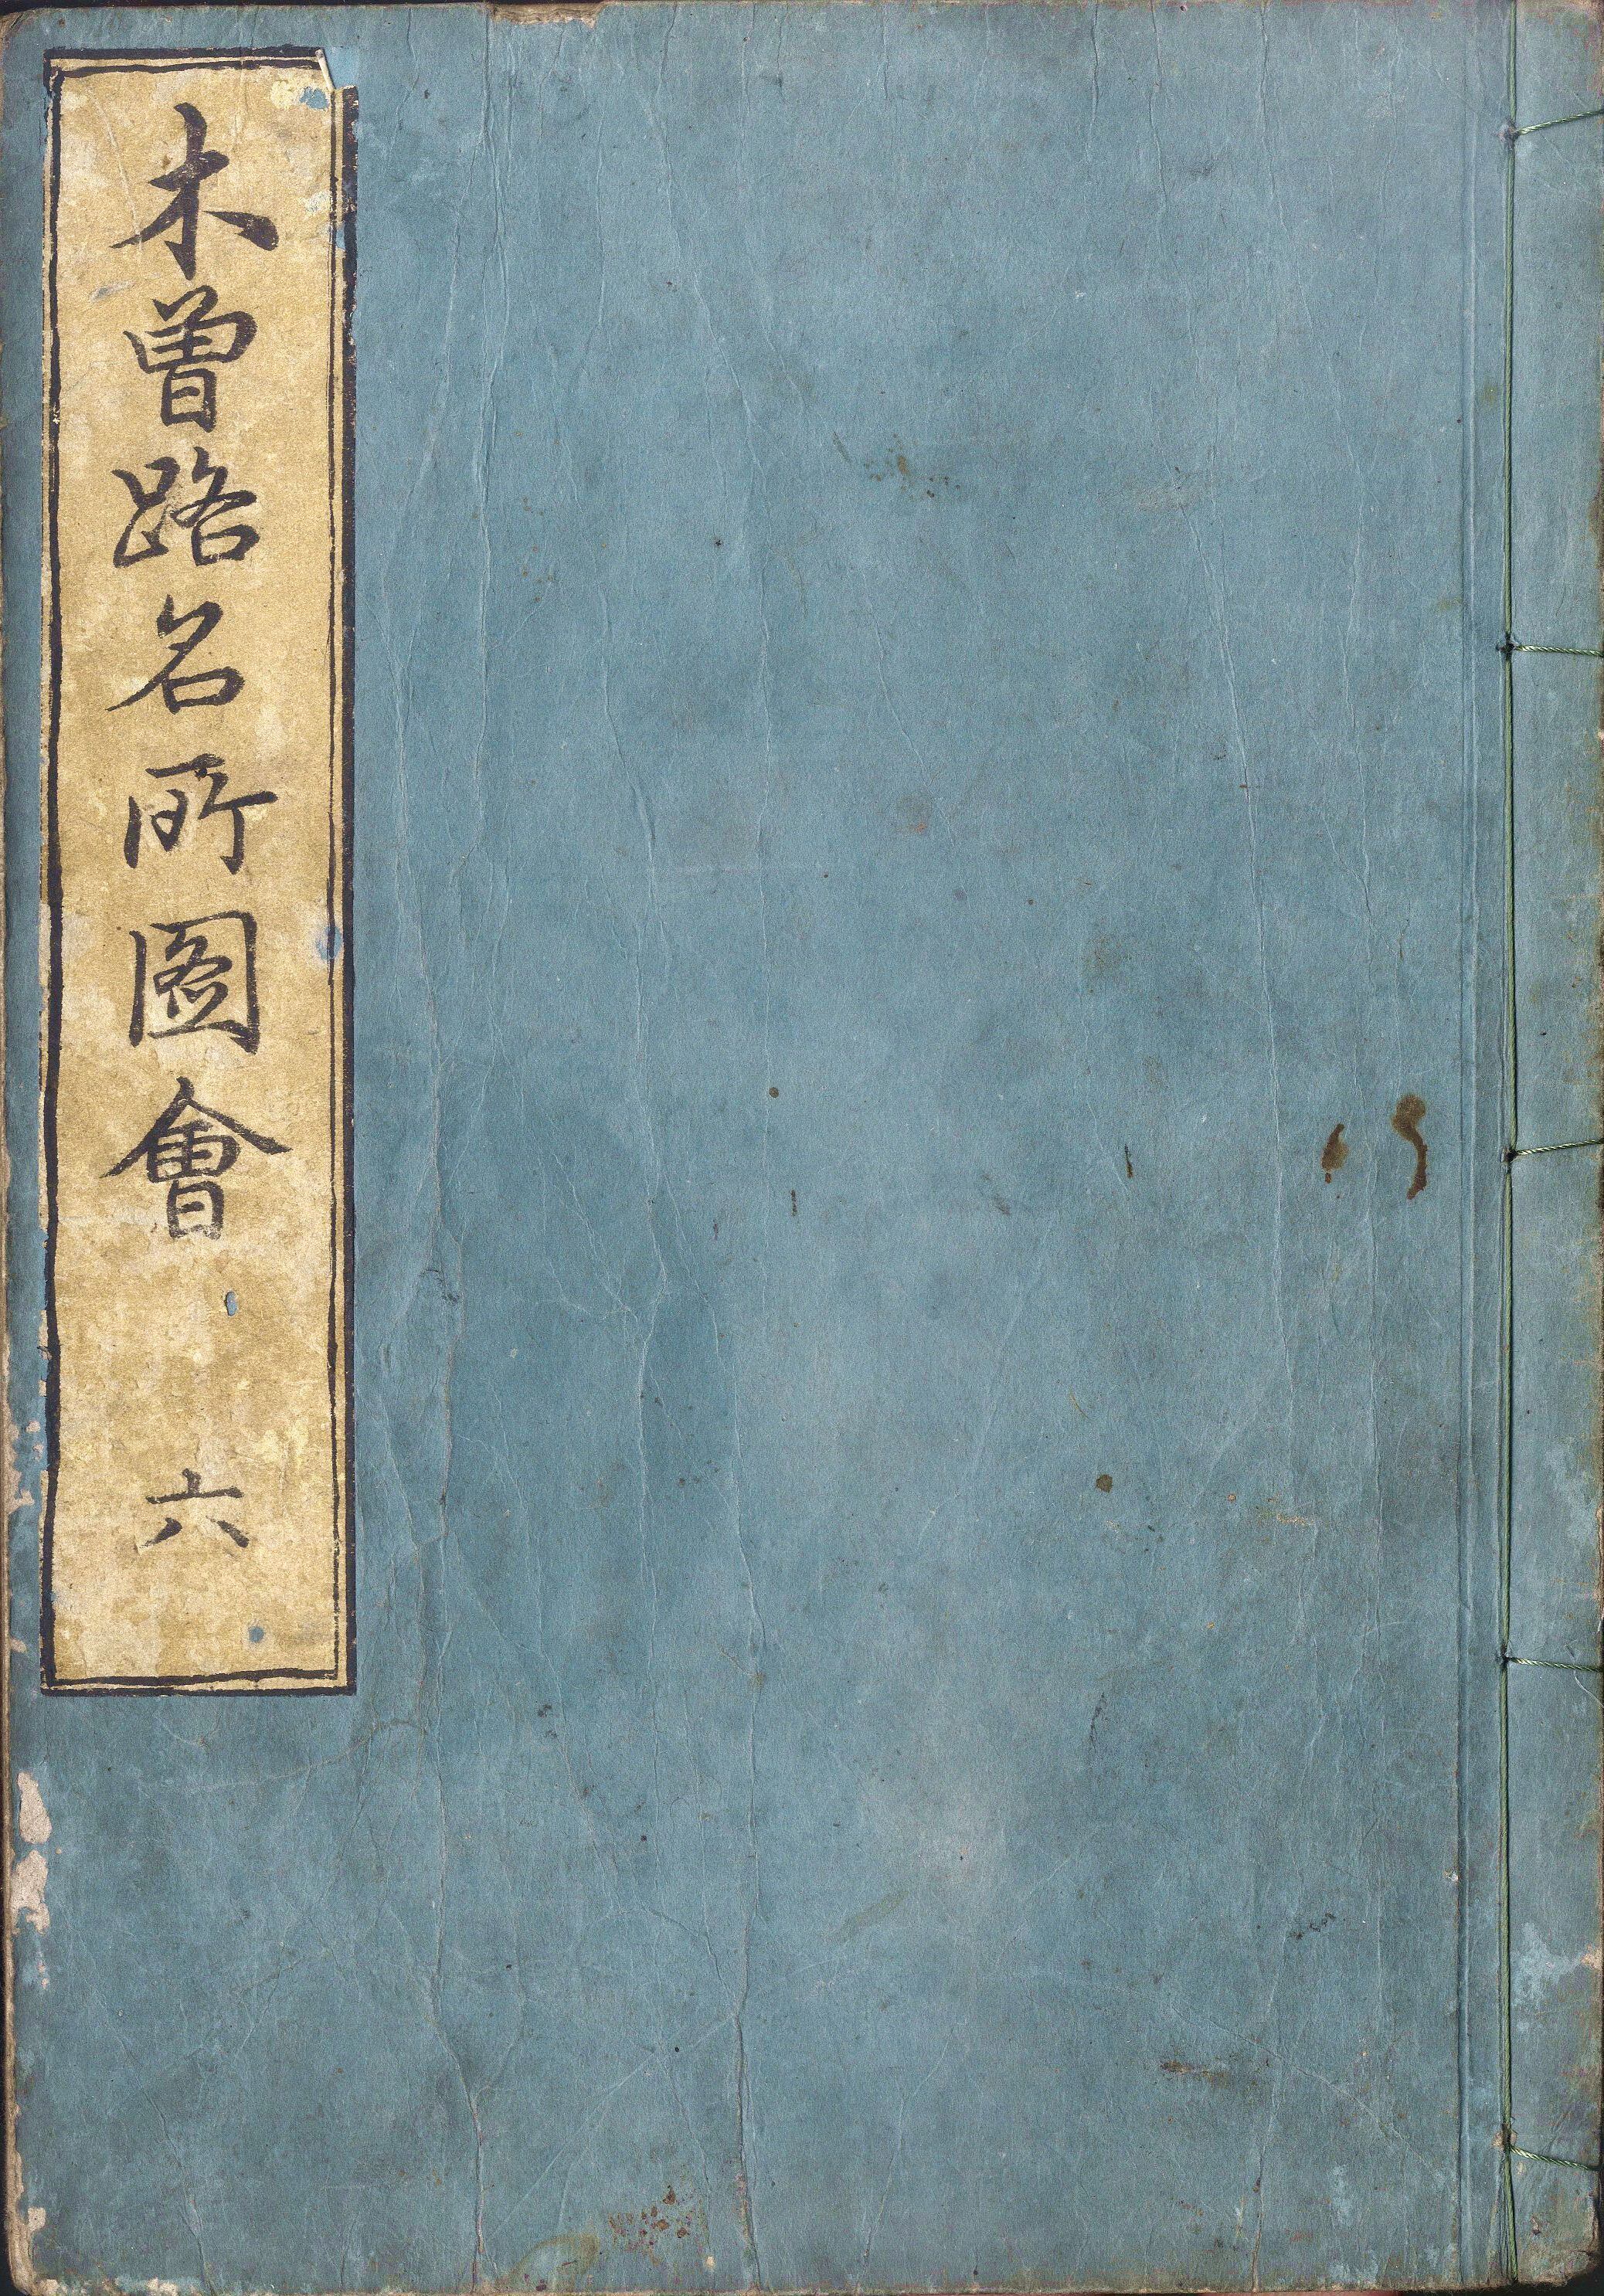 木曽路名所圖會 六